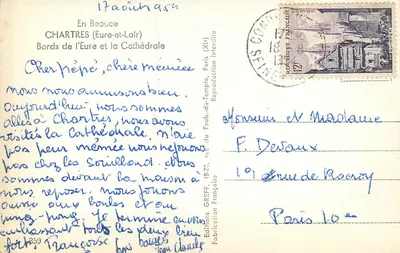 17 août 1954
En Beauce
CHARTRES (Eure-et-Loir)
Bords de l'Eure et la Cathédrale
Cher pépé, chère mémée
nous nous amusons bien.
aujourd'hui nous sommes
allés à Chartres, nous avons
visités la cathédrale. n'aie
pas peur mémée nous
pas chez les Nous
sommes devant la maison à
nous reposer. nous jouons
aussi aux boules et au
ping-pong. Je termine en vous
embrassant tous les deux bien
fort. Françoise
Jean Claude
Editions GREFF, 18-7, rue du Faub.-du-Temple, Paris (XIe)
Fabrication Française
Reproduction interdite
12F
Monsieur et Madame
F. Devaux
19 rue de Rocroy
Paris 10e